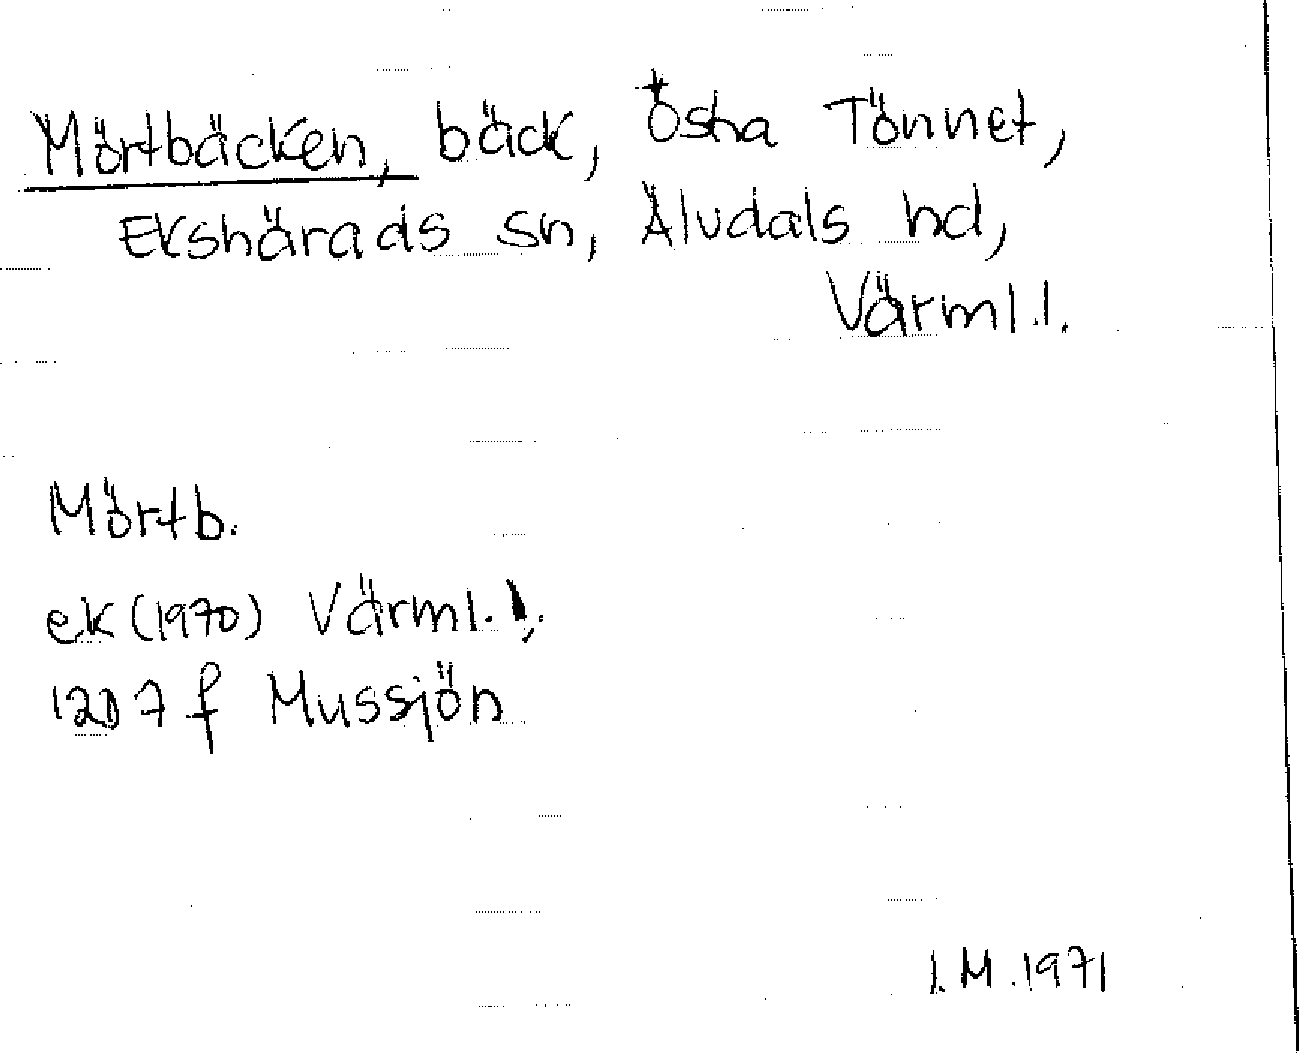 Mörtbäcken, bäck, Östra Tönnet,
Ekshärads sn, Älvdals hd,
Värml. l.
Mörtb.
ek (1970) Värml. l.
1207 f Mussjön
I.M. 1971